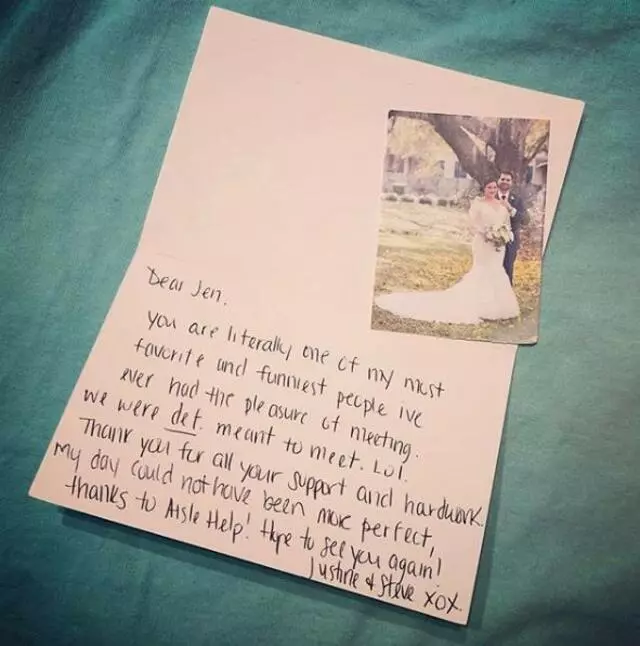 Dear Jen,
You are literally one of my most
favorite and funniest people ive
ever had the pleasure of meeting.
We were def. meant to meet. Lol.
Thank you for all your support and hardwork.
My day could not have been more perfect,
thanks to Aisle Help! Hope to see you again!
Justine & Steve xox.